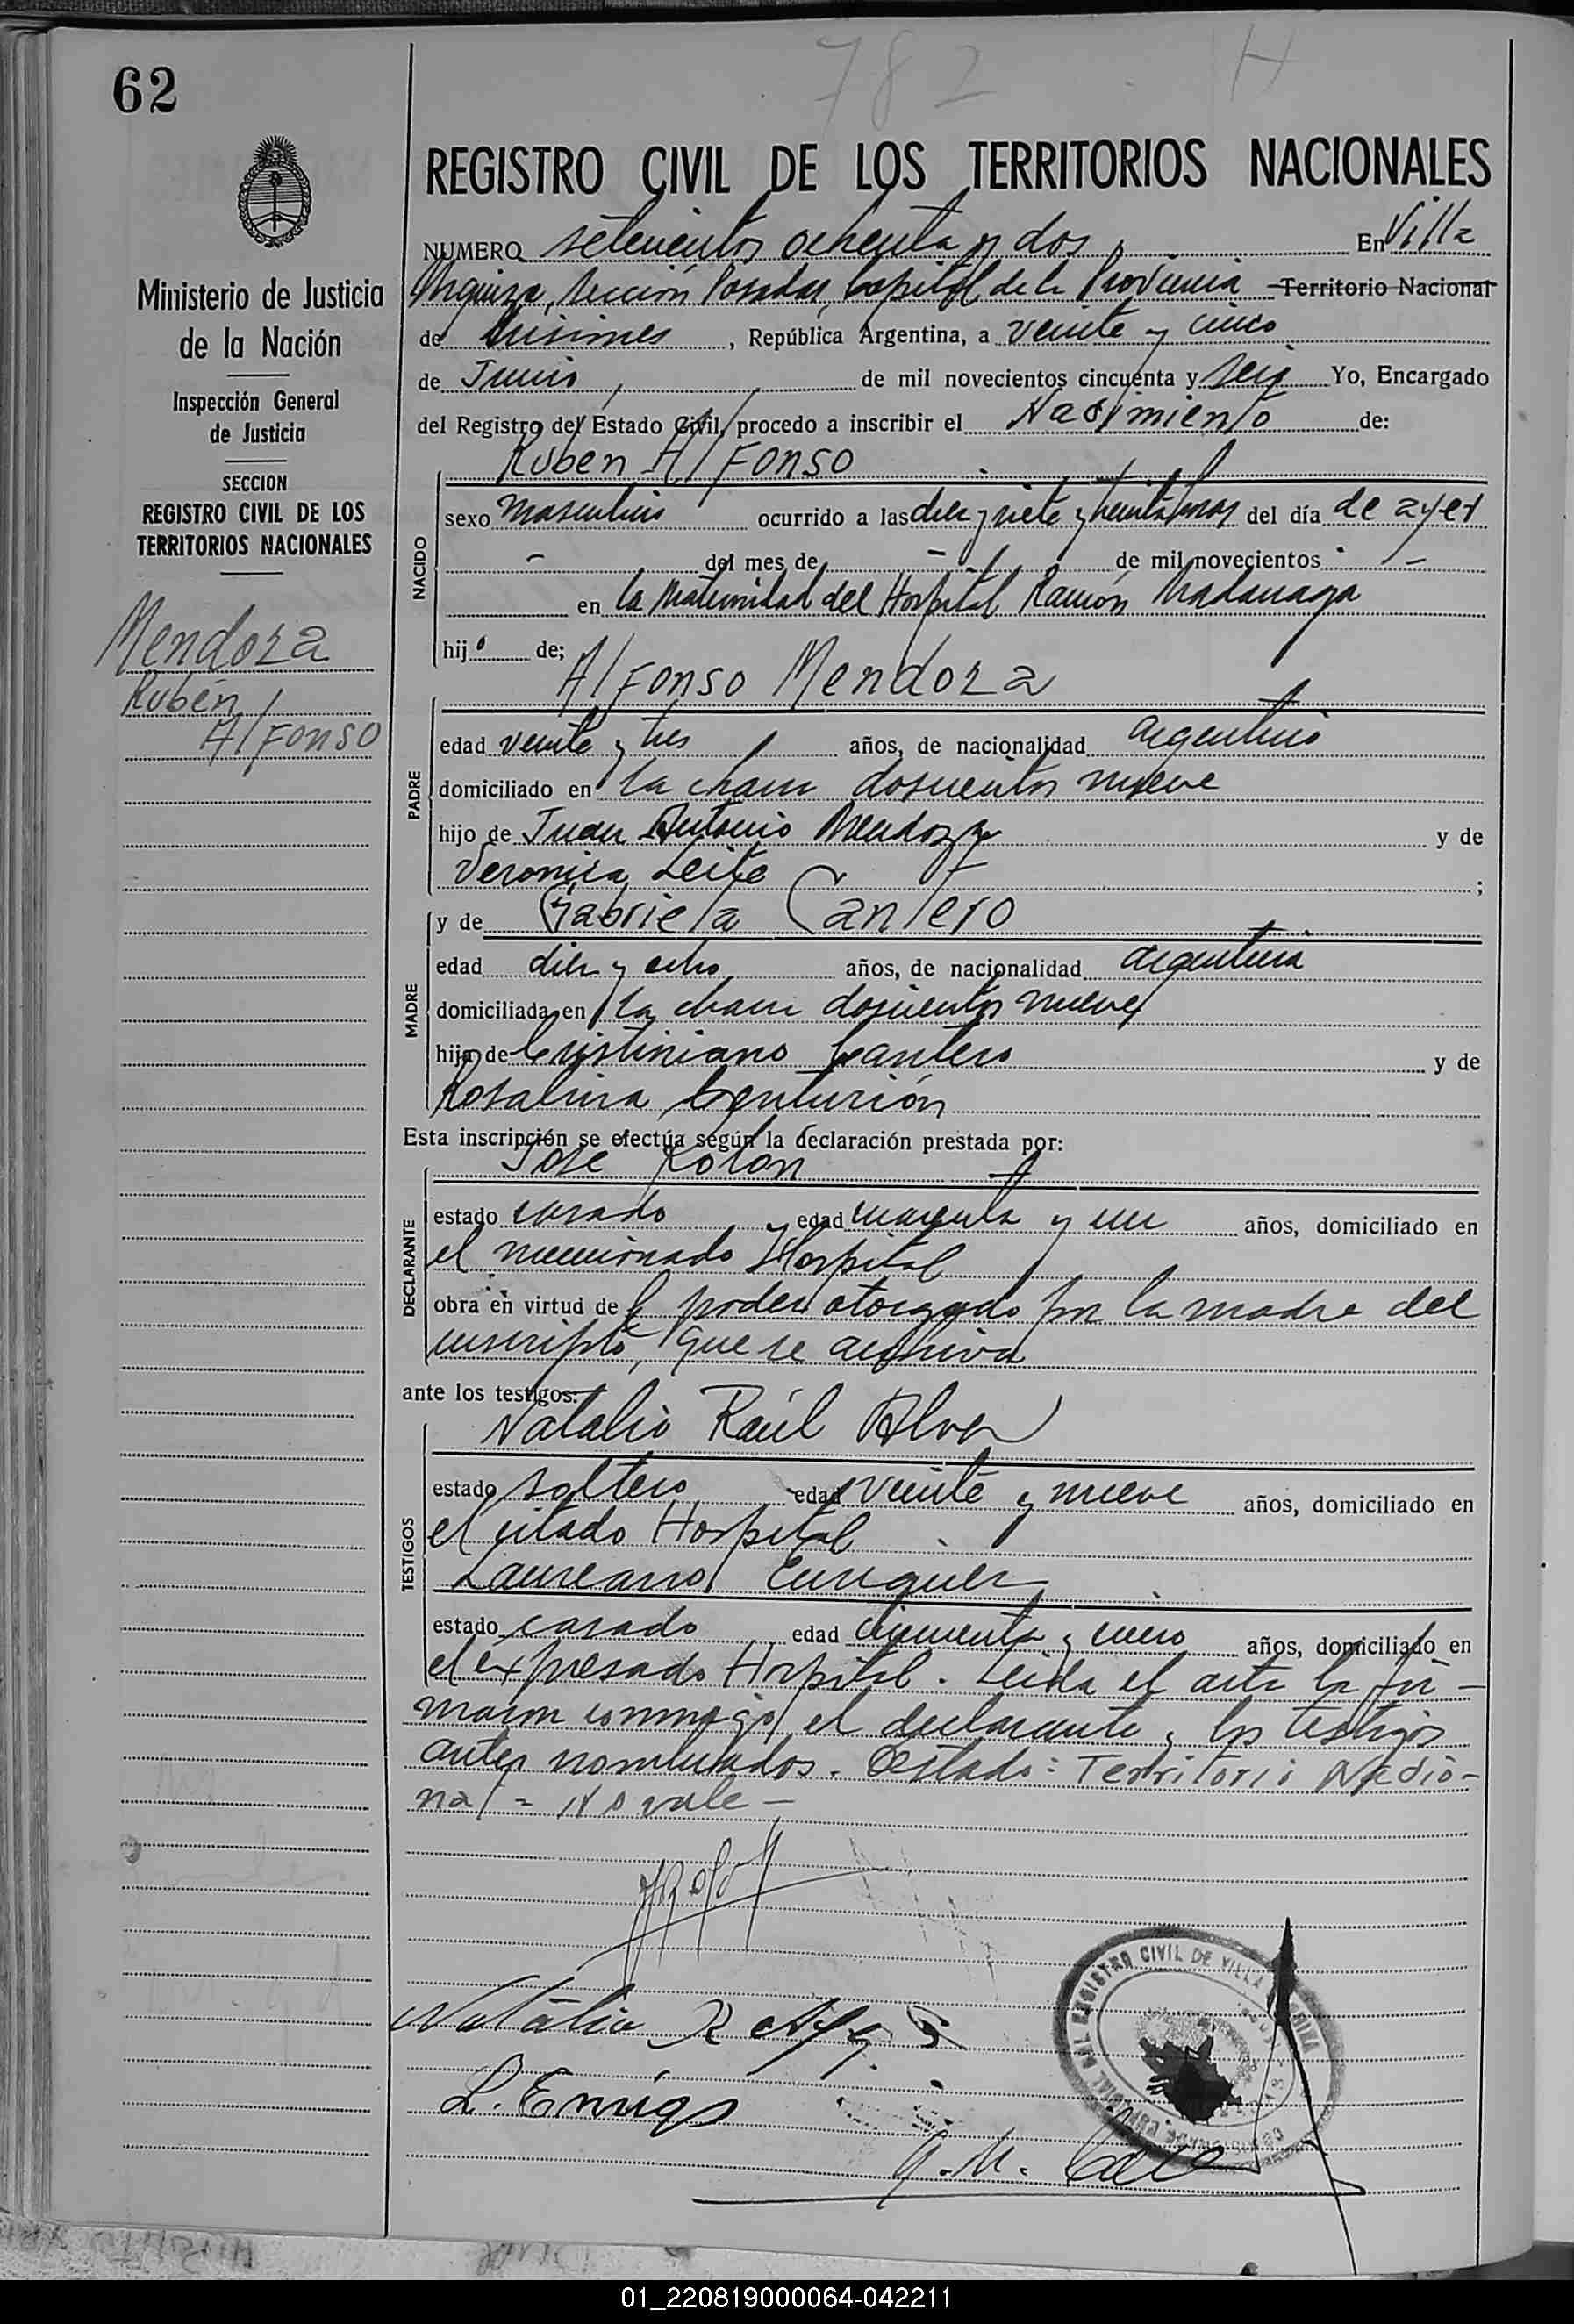 782 H
62
REGISTRO CIVIL DE LOS TERRITORIOS NACIONALES
NUMERO setecientos ochenta y dos En Villa
Urquiza, Sección Posadas, Capital de la Provincia Territorio Nacional
de Misiones, República Argentina, a veinte y cinco
de Junio, de mil novecientos cincuenta y seis Yo, Encargado
del Registro del Estado Civil, procedo a inscribir el Nacimiento de:
Ministerio de Justicia
de la Nación
Inspección General
de Justicia
SECCION
REGISTRO CIVIL DE LOS
TERRITORIOS NACIONALES
Mendoza
Rubén
Alfonso
NACIDO
Rubén Alfonso
sexo masculino ocurrido a las diez y siete y treinta horas del día de ayer
- del mes de - de mil novecientos -
en la Maternidad del Hospital Ramón Madariaga
hijo de:
Alfonso Mendoza
PADRE
edad veinte y tres años, de nacionalidad argentino
domiciliado en la chacra doscientos nueve
hijo de Juan Antonio Mendoza y de
Veronica Leite ;
MADRE
y de Gabriela Cantero
edad diez y ocho años, de nacionalidad argentina
domiciliada en la chacra doscientos nueve
hija de Cristiniano Cantero y de
Rosalina Centurión
Esta inscripción se efectúa según la declaración prestada por:
DECLARANTE
José Rolón
estado casado edad cuarenta y un años, domiciliado en
el mencionado Hospital
obra en virtud de el poder otorgado por la madre del
inscripto, que se archiva
ante los testigos:
TESTIGOS
Natalio Raúl
estado soltero edad veinte y nueve años, domiciliado en
el citado Hospital
Laureano Enriquez
estado casado edad cincuenta y cinco años, domiciliado en
el expresado Hospital. Leída el acta la fir-
maron conmigo el declarante y los testigos
antes nombrados. Testado: Territorio Nacio-
nal = No vale -
Natalio R
L. Enriqz
REGISTRO CIVIL DE VILLA
01_220819000064-042211